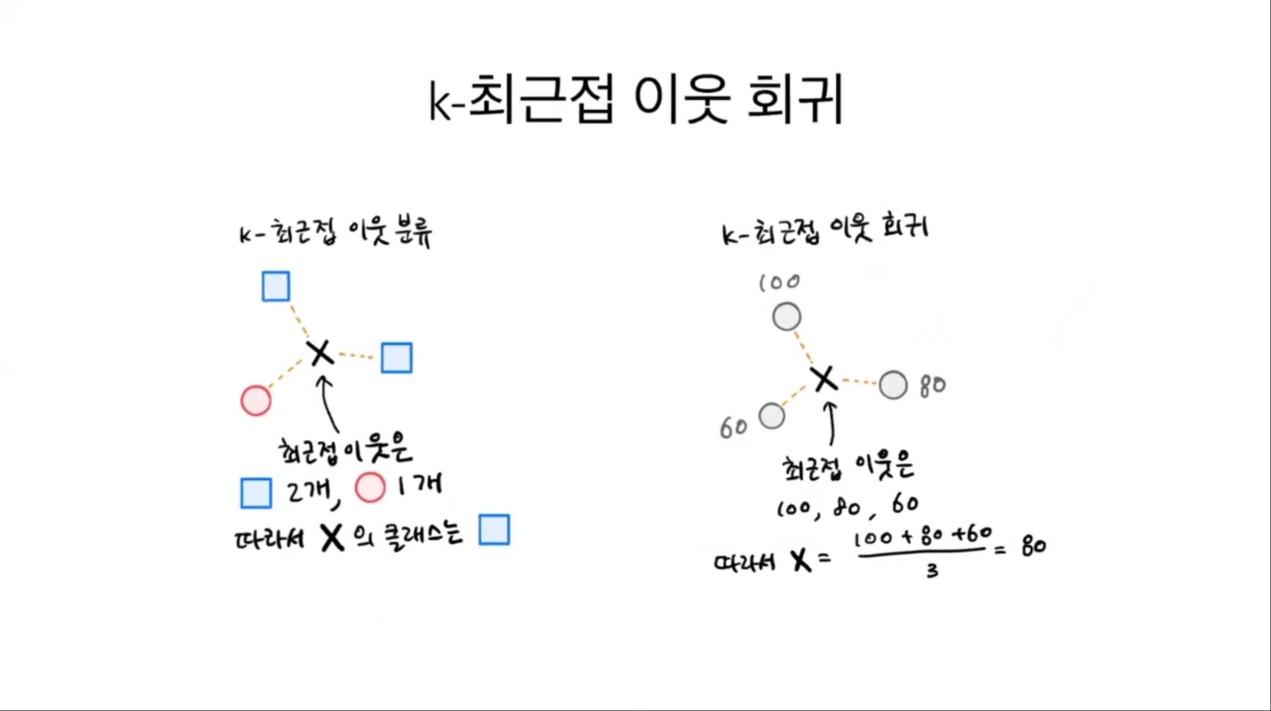 k-최근접 이웃 회귀
k-최근접 이웃 분류
최근접 이웃은
2개, 1개
따라서 X의 클래스는
k-최근접 이웃 회귀
100
80
60
최근접 이웃은
100, 80, 60
따라서 X = (100 + 80 + 60) / 3 = 80